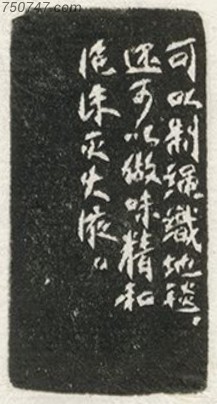 750747.com
可以制绳织地毯，
还可以做味精和
泡沫灭火液。